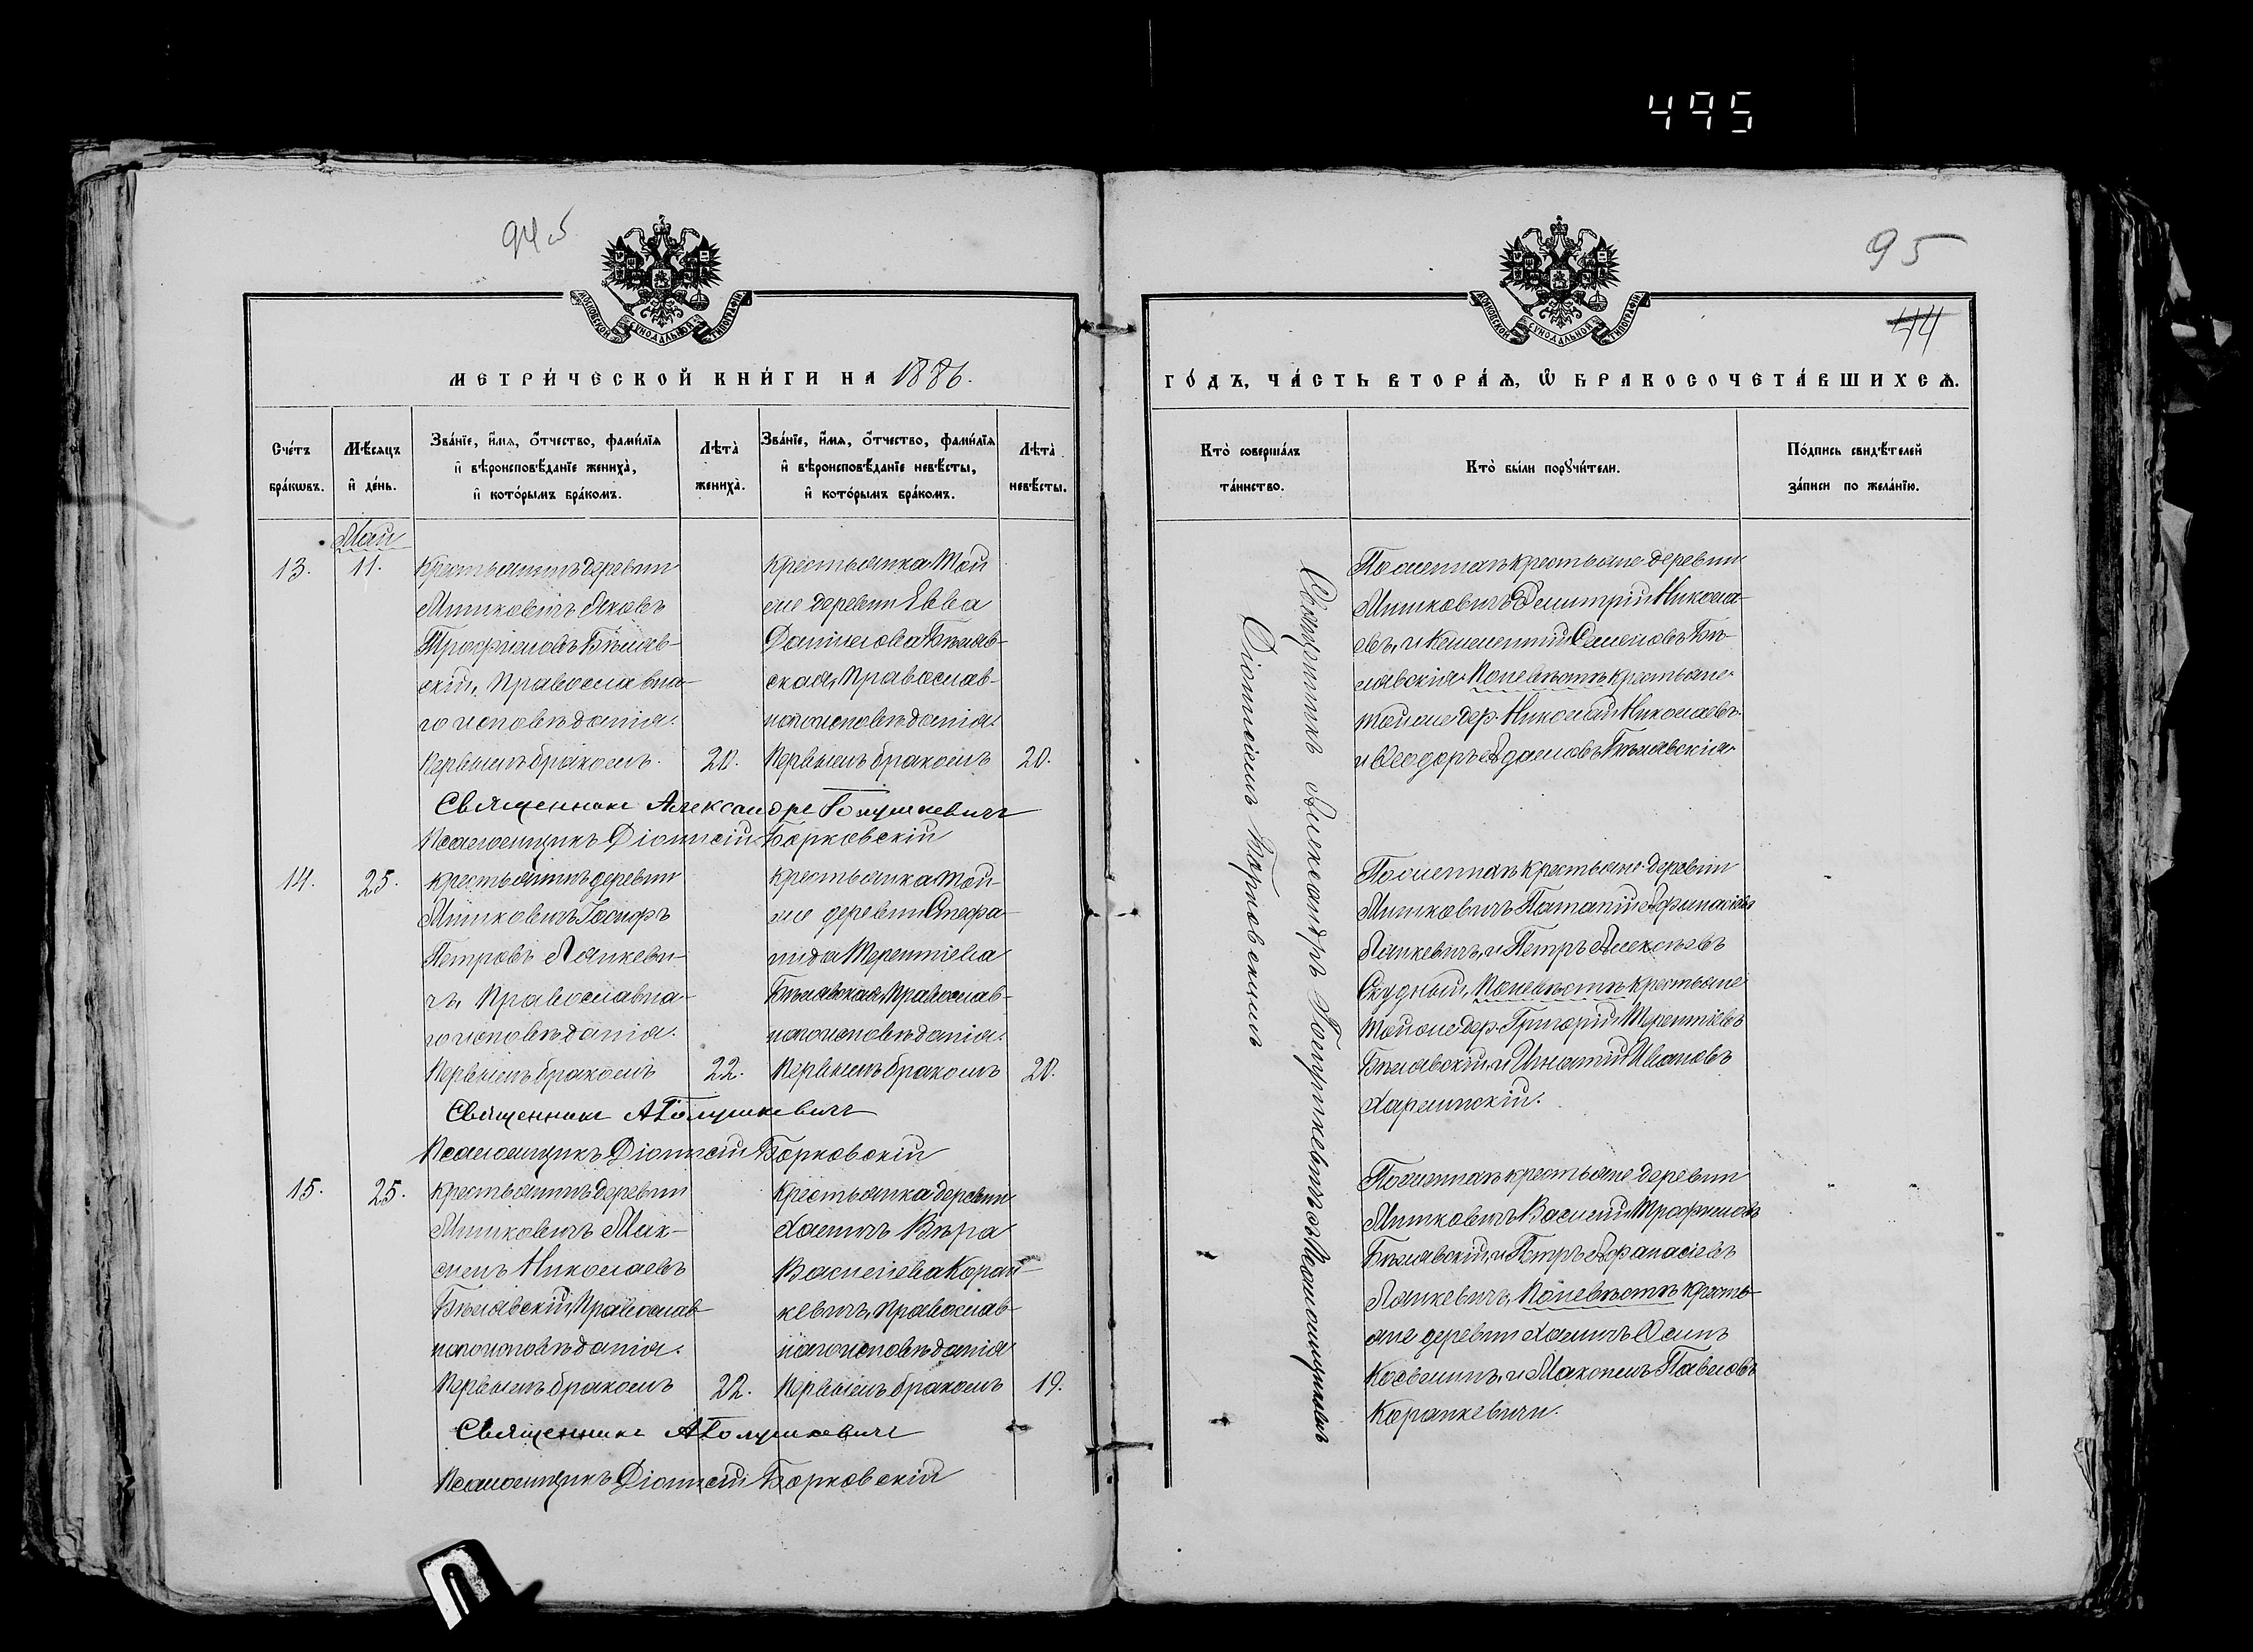 495
94 об
МОСКОВСКОЙ СУНОДАЛЬНОЙ ТИПОГРАФІИ
МЕТРИ́ЧЕСКОЙ КНИ́ГИ НА 1886.
Сче́тъ бра́кѡвъ.
Мѣ́сяцъ и҆ де́нь.
Зва́нїе, и҆́мя, о҆́тчество, фами́лїя и҆ вѣроисповѣ́данїе жениха̀, и҆ кото́рымъ бра́комъ.
Лѣта̀ жениха̀.
Зва́нїе, и҆́мя, о҆́тчество, фами́лїя и҆ вѣроисповѣ́данїе невѣ́сты, и҆ кото́рымъ бра́комъ.
Лѣта̀ невѣ́сты.
Май
13.
11.
Крестьянинъ деревни
Мишковичъ Яковъ
Трофимовъ Бѣляв-
скій, Православна-
го исповѣданія.
Первымъ бракомъ.
20.
Крестьянка той
же деревни Евва
Даніилова Бѣляв-
ская, Православ-
наго исповѣданія.
Первымъ бракомъ
20.
Священникъ Александръ Голушкевичъ
Псаломщикъ Діонисій Барковскій
14.
25.
Крестьянинъ деревни
Мишковичъ Іосифъ
Петровъ Ляшкеви-
чъ, Православна-
го исповѣданія.
Первымъ бракомъ
22.
Крестьянка той-
же деревни Стефа-
нида Терентіева
Бѣлявская, Православ-
наго исповѣданія.
Первымъ бракомъ
20.
Священникъ АГолушкевичъ
Псаломщикъ Діонисій Барковскій
15.
25.
Крестьянинъ деревни
Мишковичъ Мак-
симъ Николаевъ
Бѣлявскій, Православ
наго исповѣданія.
Первымъ бракомъ
22.
Крестьянка деревни
Вѣра
Васильева Коран-
кевичъ, Православ-
наго исповѣданія
Первымъ бракомъ
19.
Священникъ АГолушкевичъ
Псаломщикъ Діонисій Барковскій
95
44
МОСКОВСКОЙ СУНОДАЛЬНОЙ ТИПОГРАФІИ
ГО́ДЪ, ЧА́СТЬ ВТОРА́Ѧ, Ѡ҆ БРАКОСОЧЕТА́ВШИХСѦ.
Кто̀ соверша́лъ та́инство.
Кто̀ бы́ли порꙋчи́тели.
По́дпись свидѣ́телей за́писи по жела́нїю.
Священникъ Александръ Голушкевичъ съ Псаломщикомъ
Діонисіемъ Барковскимъ
По женихѣ крестьяне деревни
Мишковичъ Димитрій Никола-
евъ, и Климентій Семеновъ Бѣ-
лявскія. По невѣстѣ крестьяне
той же дер. Николай Николаевъ
и Ѳеодоръ Адамовъ Бѣлявскія.
По женихѣ крестьяне деревни
Мишковичъ Патапій Афанасіевъ
Ляшкевичъ, и Петръ Алексѣевъ
Скудный, По невѣстѣ крестьяне
той же дер. Григорій Терентіевъ
Бѣлявскій, и Игнатій Ивановъ
По женихѣ крестьяне деревни
Мишковичъ Василій Трофимовъ
Бѣлявскій, и Петръ Афанасіевъ
Ляшкевичъ, По невѣстѣ кресть-
яне деревни Осипъ
и Павловъ
Коранкевичи.